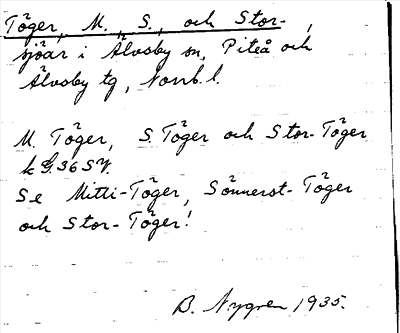 Töger, M., S., och Stor-,
sjöar i Älvsby sn, Piteå och
Älvsby tg, Norrb. l.
M. Töger, S. Töger och Stor-Töger
k G. 36 SV.
Se Mitti-Töger, Sönnerst-Töger
och Stor-Töger!
B. Nygren 1935.